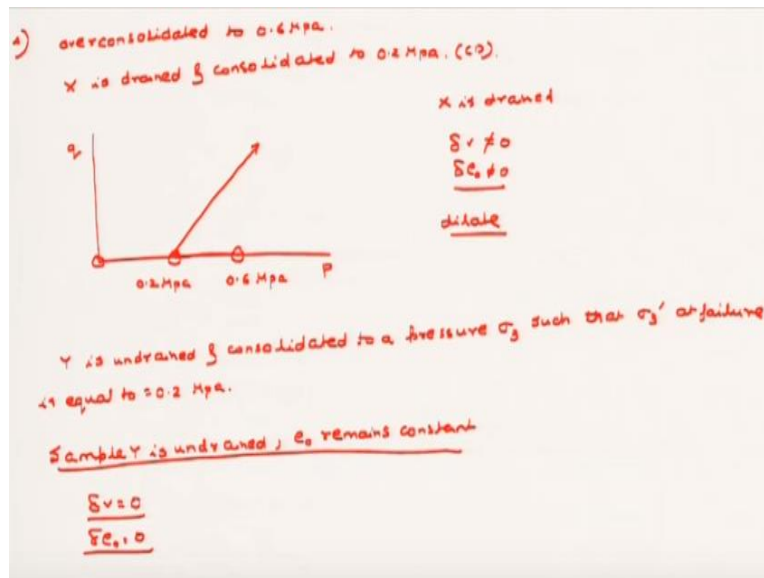 1) overconsolidated to 0.6 Mpa.
X is drained & consolidated to 0.2 Mpa. (CD).
X is drained
δv ≠ 0
δe₀ ≠ 0
dilate
q
0.2 Mpa
0.6 Mpa
P
Y is undrained & consolidated to a pressure σ₃ such that σ₃' at failure
is equal to = 0.2 Mpa.
Sample Y is undrained, e₀ remains constant
δv = 0
δe₀ = 0